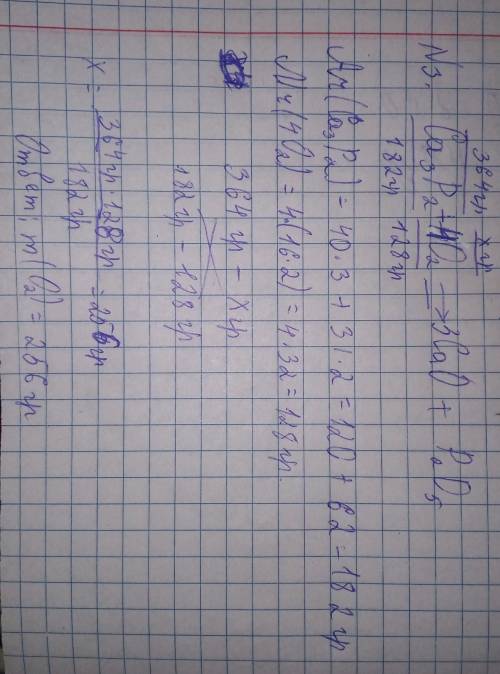 364гр xгр
№3. Ca₃P₂ + 4O₂ => 3CaO + P₂O₅
182гр 128гр
Ar(Ca₃P₂) = 40·3 + 31·2 = 120 + 62 = 182гр
Mr(4O₂) = 4·(16·2) = 4·32 = 128гр.
364гр – xгр
182гр – 128гр
x = 364гр·128гр / 182гр = 256гр
Ответ: m(O₂) = 256гр